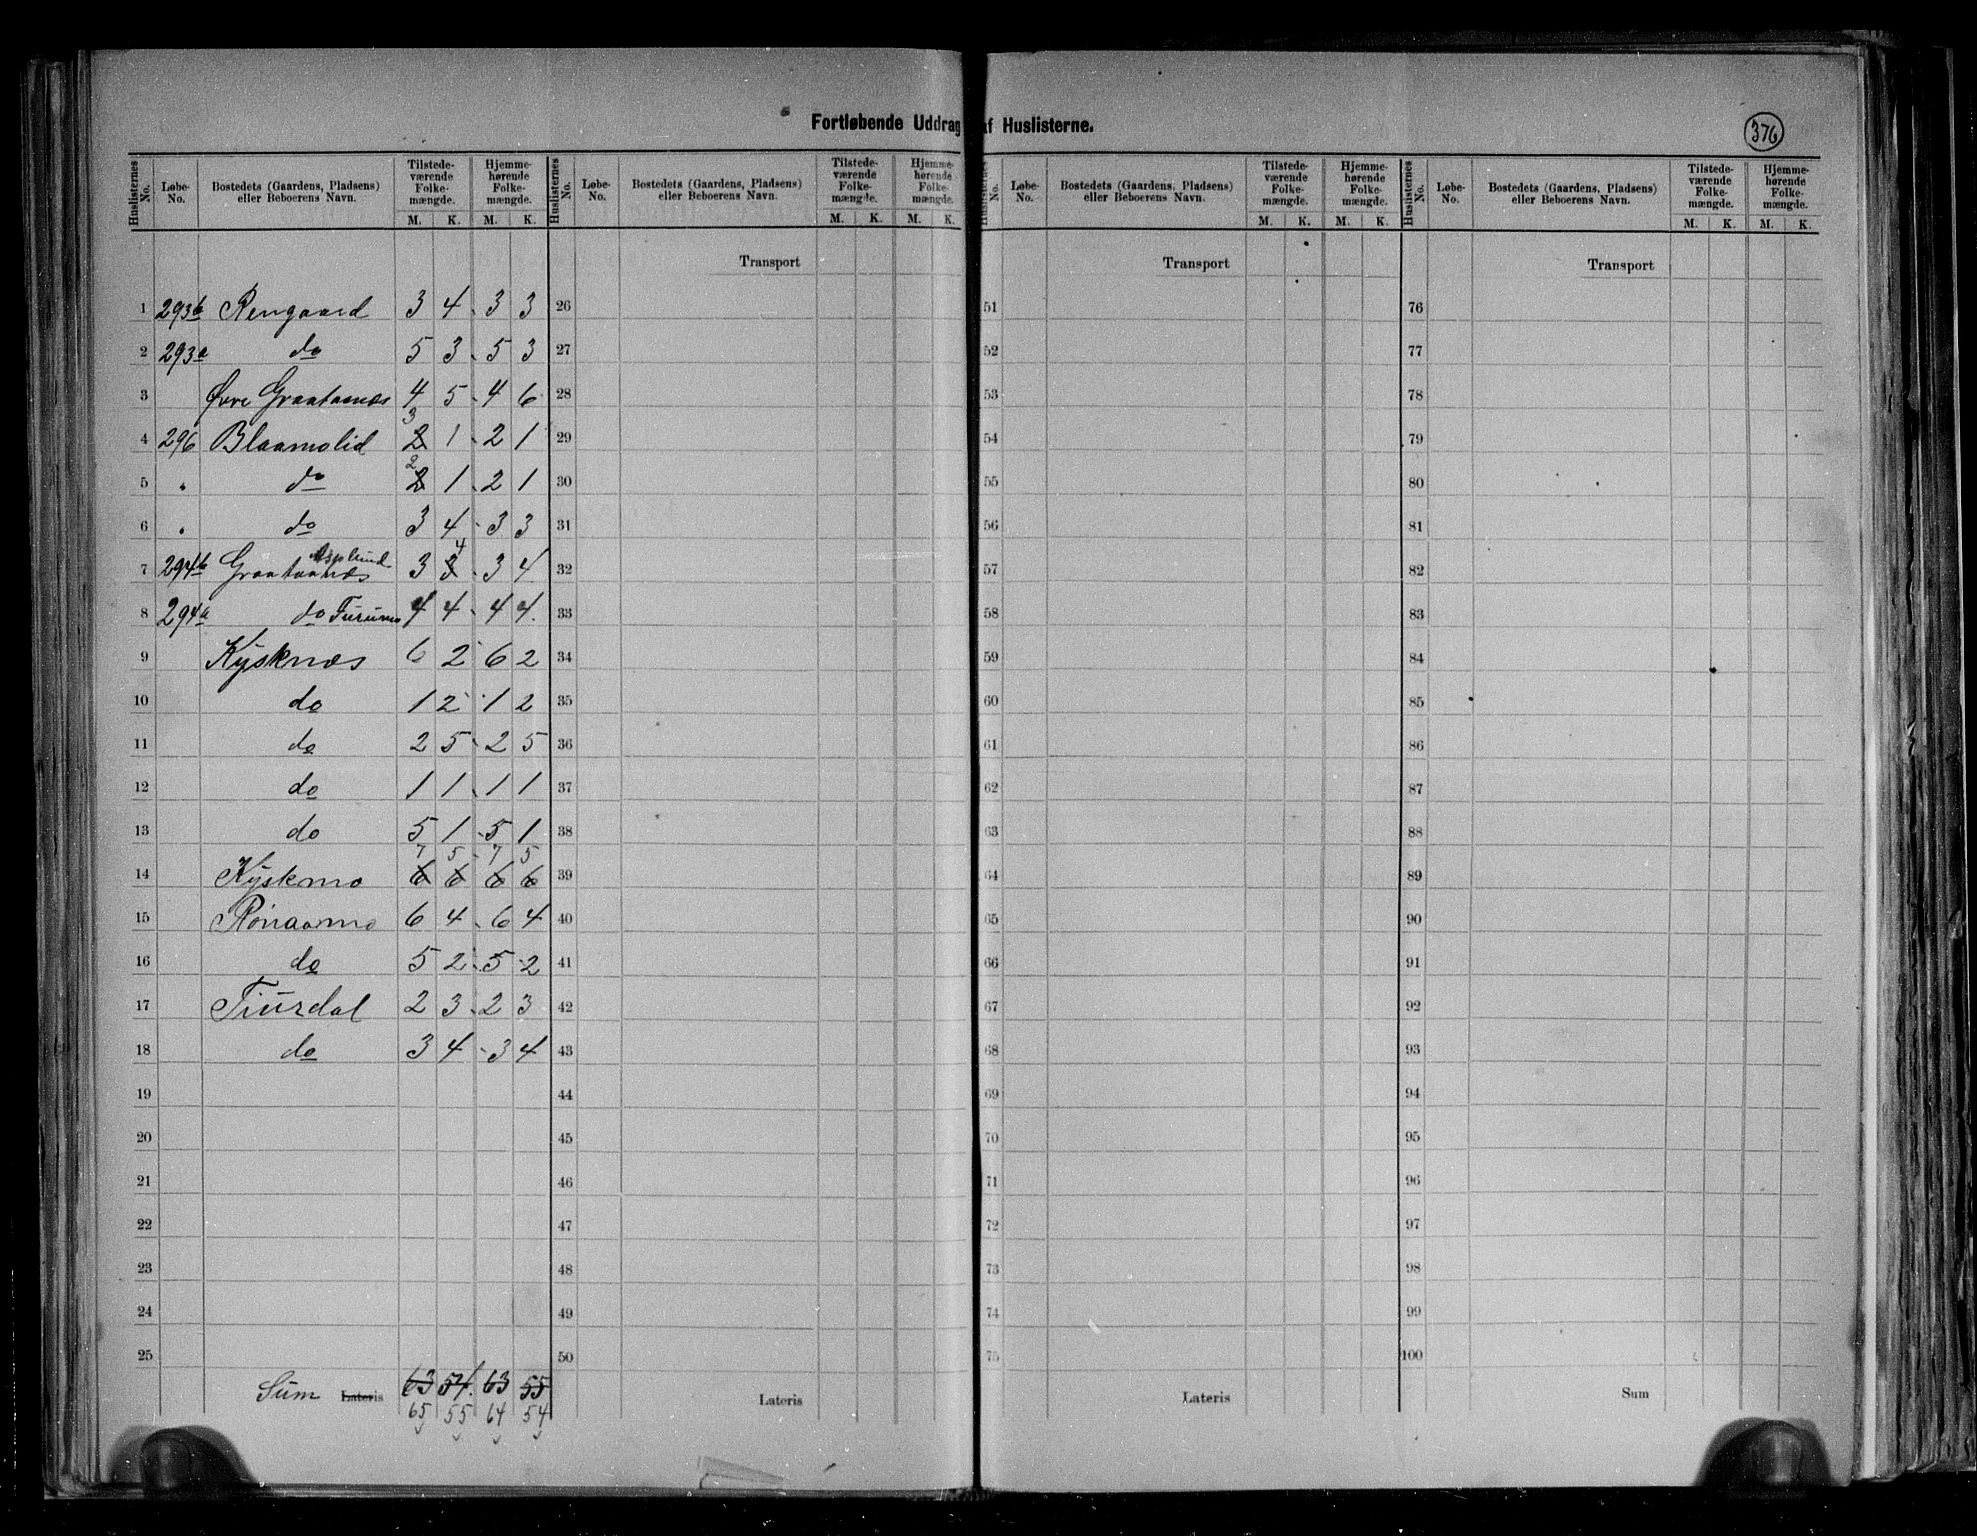 Fortløbende Uddrag af Huslisterne.
376
Huslisternes No. Løbe-No. Bostedets (Gaardens, Pladsens) eller Beboerens Navn. Tilstede-værende Folke-mængde. M. K. Hjemme-hørende Folke-mængde. M. K.
1 293b Rengaard 3 4 3 3
2 293a do 5 3 5 3
3 Øvre Graatanæs 4 5 4 6
4 296 Blaamolid 2 3 1 2 1
5 " do 2 2 1 2 1
6 " do 3 4 3 3
7 294b Graataanæs Asplund 3 3 4 3 4
8 294a do Furumo 4 4 4 4
9 Kjysknæs 6 2 6 2
10 do 1 2 1 2
11 do 2 5 2 5
12 do 1 1 1 1
13 do 5 1 5 1
14 Kjyskmo 6 7 6 5 6 7 6 5
15 Rönaamo 6 4 6 4
16 do 5 2 5 2
17 Tiurdal 2 3 2 3
18 do 3 4 3 4
19
20
21
22
23
24
25
Sum Lateris 63 54. 63 55
65 55 64 54
Huslisternes No. Løbe-No. Bostedets (Gaardens, Pladsens) eller Beboerens Navn. Tilstede-værende Folke-mængde. M. K. Hjemme-hørende Folke-mængde. M. K.
Transport
26
27
28
29
30
31
32
33
34
35
36
37
38
39
40
41
42
43
44
45
46
47
48
49
50
Lateris
Huslisternes No. Løbe-No. Bostedets (Gaardens, Pladsens) eller Beboerens Navn. Tilstede-værende Folke-mængde. M. K. Hjemme-hørende Folke-mængde. M. K.
Transport
51
52
53
54
55
56
57
58
59
60
61
62
63
64
65
66
67
68
69
70
71
72
73
74
75
Lateris
Huslisternes No. Løbe-No. Bostedets (Gaardens, Pladsens) eller Beboerens Navn. Tilstede-værende Folke-mængde. M. K. Hjemme-hørende Folke-mængde. M. K.
Transport
76
77
78
79
80
81
82
83
84
85
86
87
88
89
90
91
92
93
94
95
96
97
98
99
100
Sum